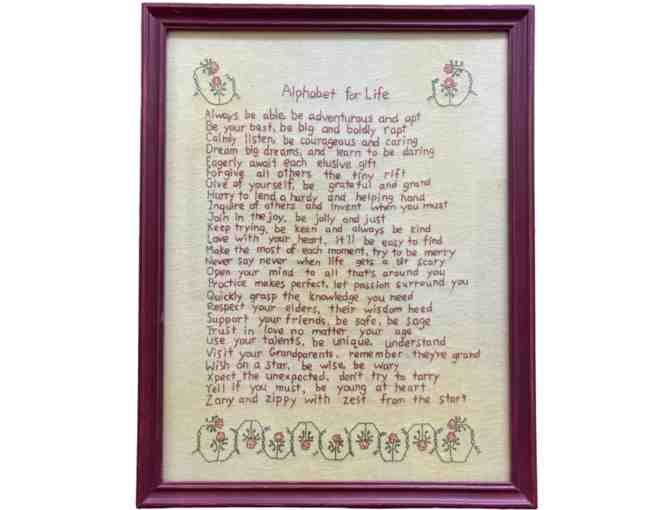 Alphabet for Life
Always be able, be adventurous and apt
Be your best, be big and boldly rapt
Calmly listen, be courageous and caring
Dream big dreams, and learn to be daring
Eagerly await each elusive gift
Forgive all others the tiny rift
Give of yourself, be grateful and grand
Hurry to lend a hardy and helping hand
Inquire of others and invent when you must
Join in the joy, be jolly and just
Keep trying, be keen and always be kind
Love with your heart, it'll be easy to find
Make the most of each moment, try to be merry
Never say never when life gets a bit scary
Open your mind to all that's around you
Practice makes perfect, let passion surround you
Quickly grasp the knowledge you need
Respect your elders, their wisdom heed
Support your friends, be safe, be sage
Trust in love no matter your age
Use your talents, be unique, understand
Visit your Grandparents, remember they're grand
Wish on a star, be wise, be wary
Xpect the unexpected, don't try to tarry
Yell if you must, be young at heart
Zany and zippy with zest from the start